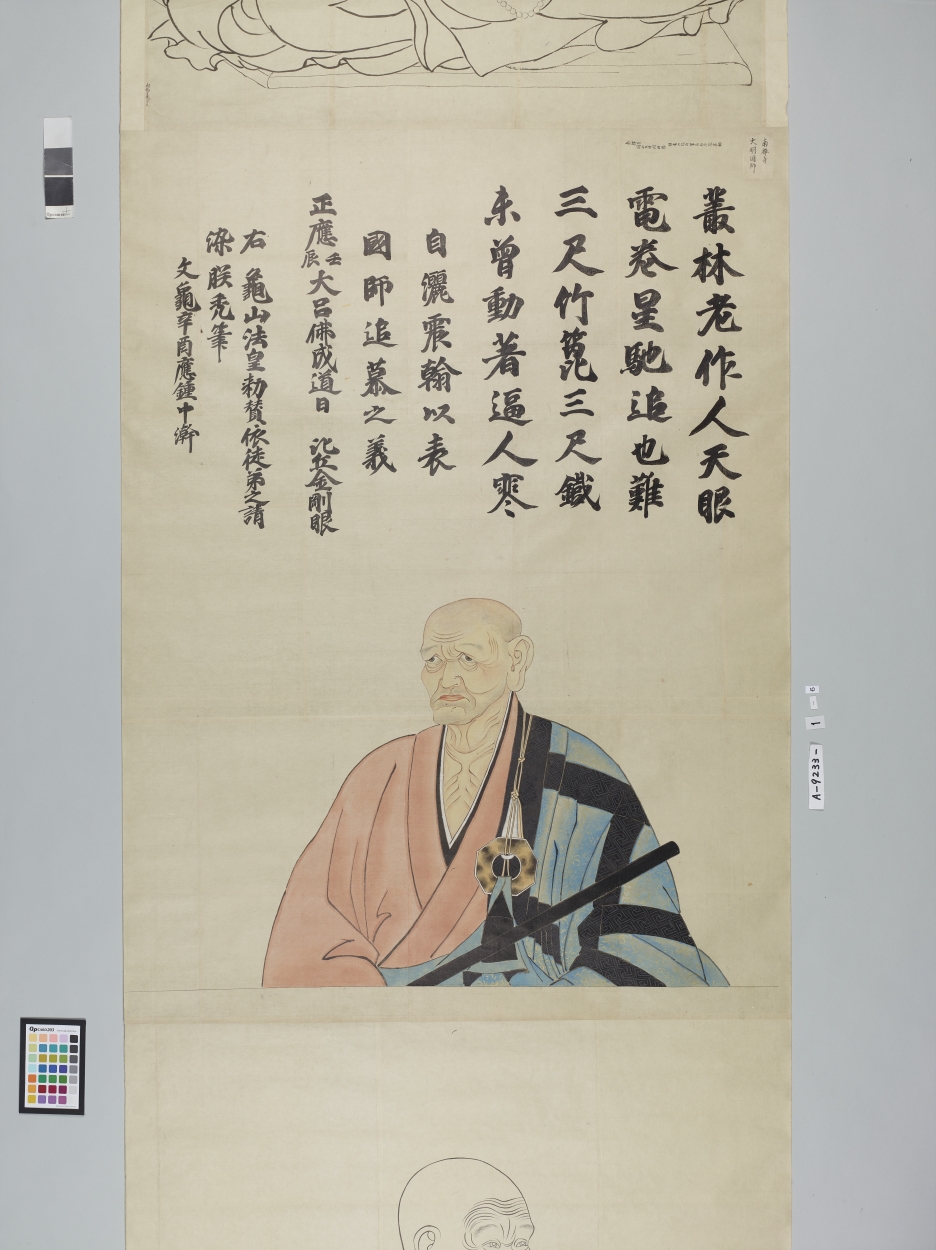 南禅寺
大明國師
叢林老作人天眼
電卷星馳追也難
三尺竹箆三尺鐵
未曾動著逼人寒
自灑宸翰以表
國師追慕之義
正應壬辰大呂佛成道日 金剛眼
右 龜山法皇勅賛依徒弟之請
染朕禿筆
文龜辛酉應鐘中澣
A-9233-1